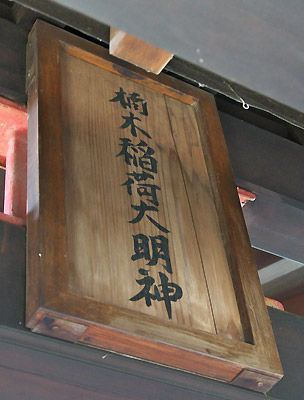 楠木稲荷大明神